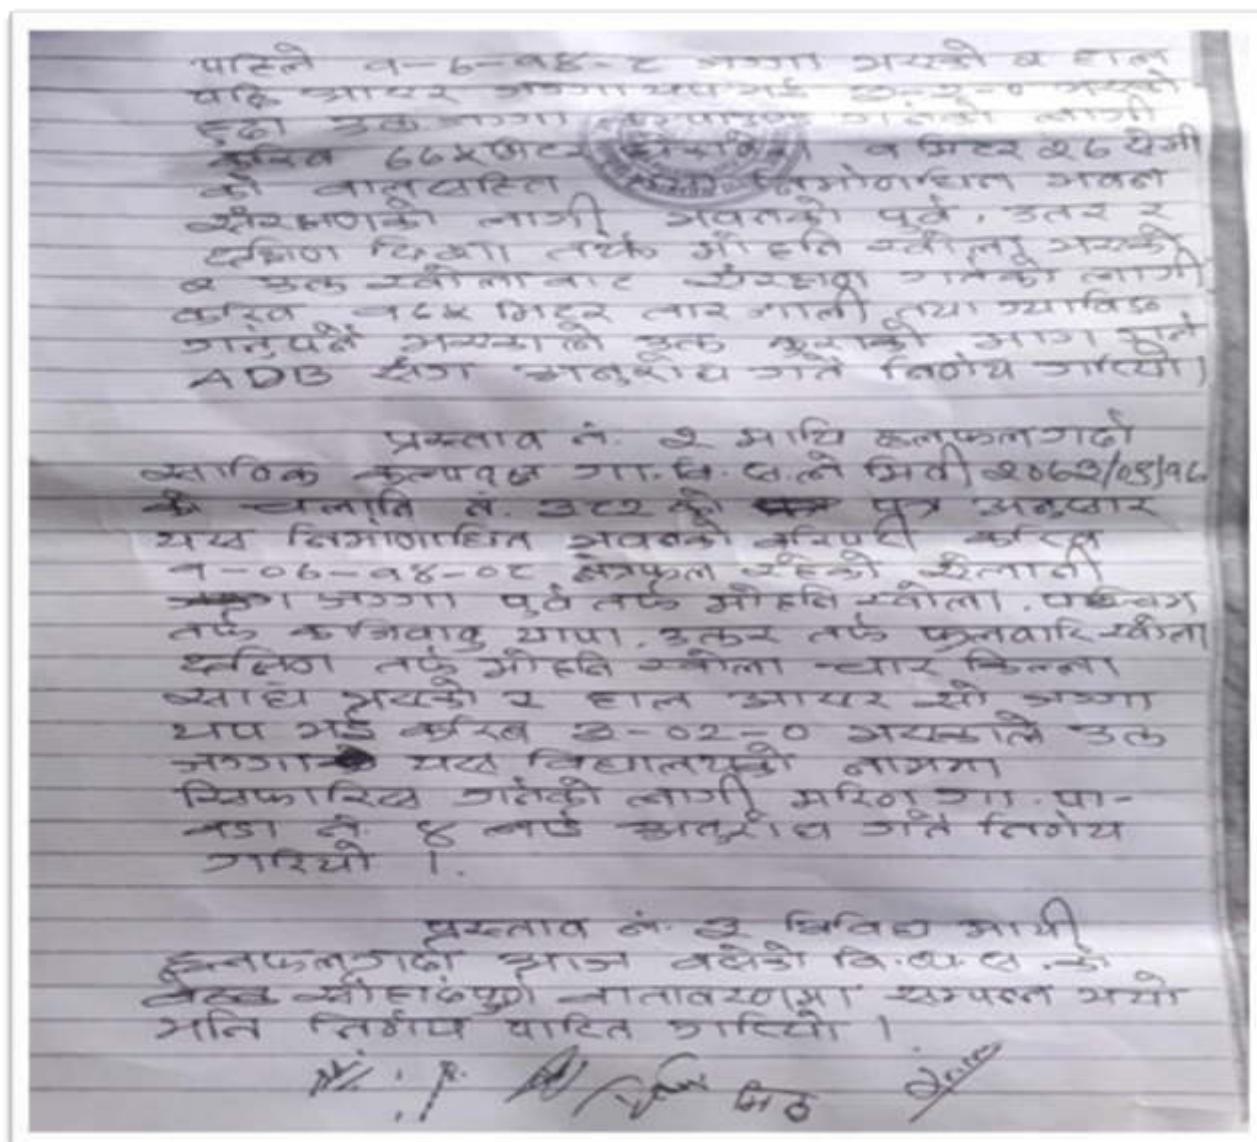 पहिले १-६-१४-८ जग्गा भएको र हाल
यहि आएर जग्गा थप भई ३-२-० भएको
हुदा उक्त जग्गा गर्नको लागी
करिब ६६५ मिटर १ मिटर २६ सेमी
को वालसहित निर्माणाधिन भवन
संरक्षणको लागी भवनको पुर्व, उतर र
दक्षिण दिशा तर्फ मोहनि खोला भएको
र उक्त खोलाबाट संरक्षण गर्नको लागी
करिब १८५ मिटर तार जाली तथा ग्याविङ
गर्नुपर्ने भएकाले उक्त कुराको माग गर्न
ADB संग अनुरोध गर्ने निर्णय गरियो।
प्रस्ताव नं. २ माथि छलफल गर्दा
साविक गा.बि.स.ले मिती २०६३/०५/१८
को चलानि नं. ३८२ को पत्र अनुसार
यस निर्माणाधित भवनको वरिपरी करिब
१-०६-१४-०८ क्षेत्रफल रहेको ऐलानी
जग्गा पुर्व तर्फ मोहनि खोला, पश्चिम
तर्फ कजिबाबु थापा, उत्तर तर्फ फुलवारि खोला
दक्षिण तर्फ मोहनि खोला चार किल्ला
साध भएको र हाल आएर सो जग्गा
थप भई करिब ३-०२-० भएकाले उक्त
जग्गा यस विद्यालयको नाममा
सिफारिस गर्नको लागी मरिण गा.पा-
वडा नं. ४ लाई अनुरोध गर्ने निर्णय
गरियो ।
प्रस्ताव नं. ३ बिविध माथी
छलफल गर्दा आज बसेको बि.ब्य.स.को
बैठक सौहार्दपुर्ण वातावरणमा सम्पन्न भयो
भनि निर्णय पारित गरियो ।